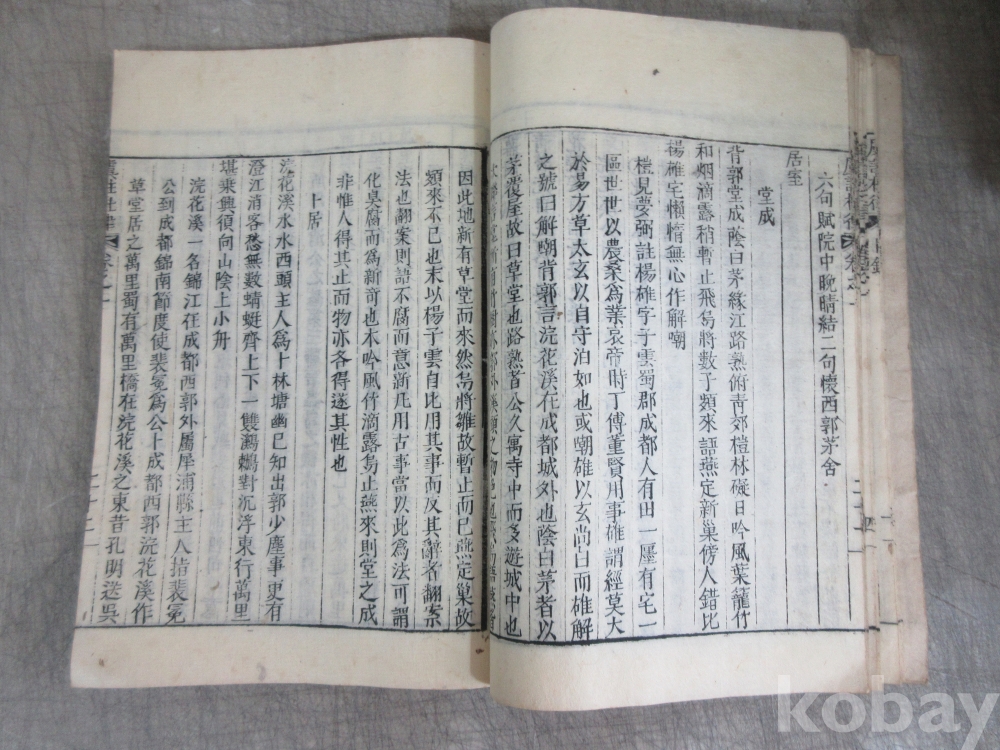 六句賦院中晚晴結二句懷西郭茅舍
居室
堂成
背郭堂成蔭白茅緣江路熟俯靑郊榿林礙日吟風葉籠竹
和烟滴露梢暫止飛烏將數子頻來語燕定新巢傍人錯比
楊碓宅懶惰無心作解嘲
榿見夢弼註楊碓字子雲蜀郡成都人有田一廛有宅一
區世世以農桑爲業哀帝時丁傅董賢用事碓謂經莫大
於易方草太玄以自守泊如也或嘲碓以玄尚白而碓解
之號曰解嘲背郭言浣花溪在成都城外也蔭白茅者以
茅覆屋故曰草堂也路熟者公久寓寺中而多遊城中也
因此地新有草堂而來然烏將雛故暫止而已燕定巢故
頻來不已也末以楊子雲自比用其事而反其辭者翻案
法也翻案則語不腐而意新凡用古事當以此為法可謂
化臭腐而為新竒也木吟風竹滴露烏止燕來則堂之成
非惟人得其止而物亦各得遂其性也
卜居
浣花溪水水西頭主人為卜林塘幽已知出郭少塵事更有
澄江消客愁無數蜻蜓齊上下一雙鸂鶒對沉浮東行萬里
堪乘興須向山陰上小舟
浣花溪一名錦江在成都西郭外屬犀浦縣主人指裴冕
公到成都錦南節度使裴冕為公卜成都西郭浣花溪作
草堂居之萬里蜀有萬里橋在浣花溪之東昔孔明送吳
虞註杜律
二十二
kobay